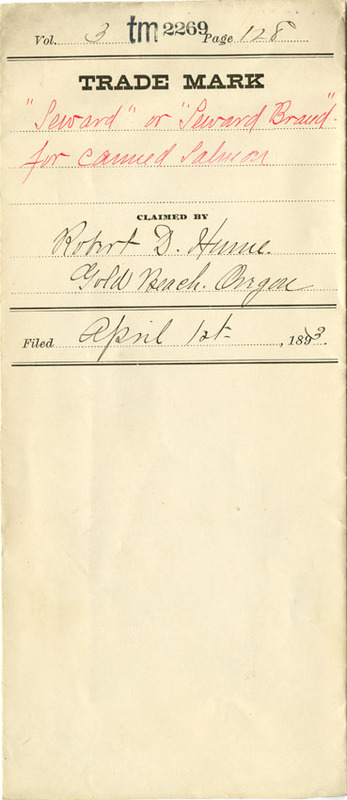 Vol. 3 tm 2269 Page 128
TRADE MARK
"Seward" or "Seward Brand"
for canned Salmon
CLAIMED BY
Robert D. Hume.
Gold Beach. Oregon
Filed April 1st, 1893.